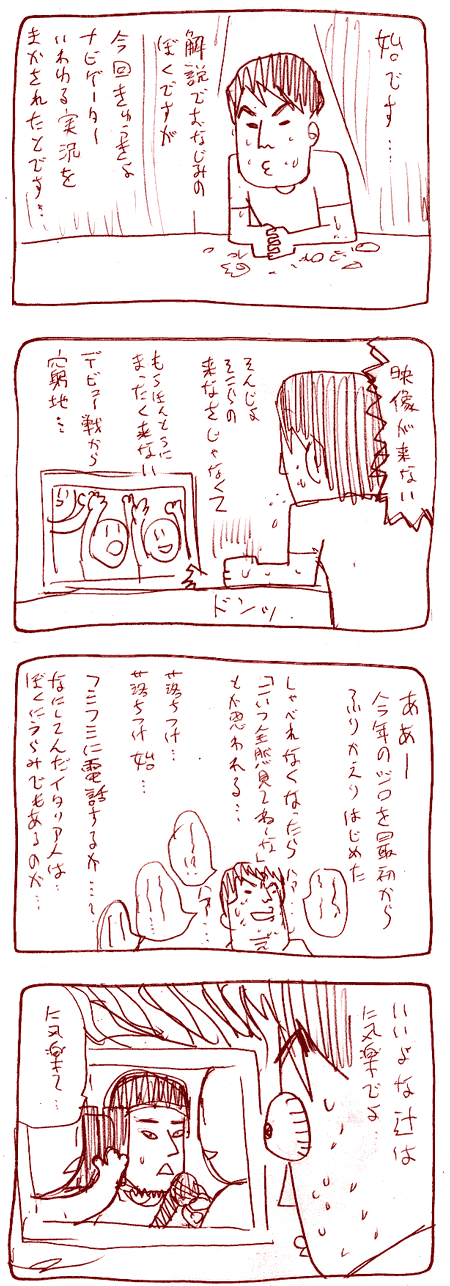 始。です…
解説でおなじみの
ぼくですが
今回きゅうきょ
ナビゲーター
いわゆる実況を
まかされたとです…
映像が来ない
そんじょ
そこらの
来なさじゃなくて
もうほんとうに
まったく来ない
デビュー戦から
窮地…
ドンッ
ああー
今年のジロを最初から
ふりかえりはじめた
しゃべれなくなったら
「こいつ全然見てねーな」
とか思われる…
落ちつけ…
落ちつけ始…
フミフミに電話するか…
なにしてんだイタリア人は…
ぼくにうらみでもあるのか…
いいよな辻は
気楽でよ…
気楽て…